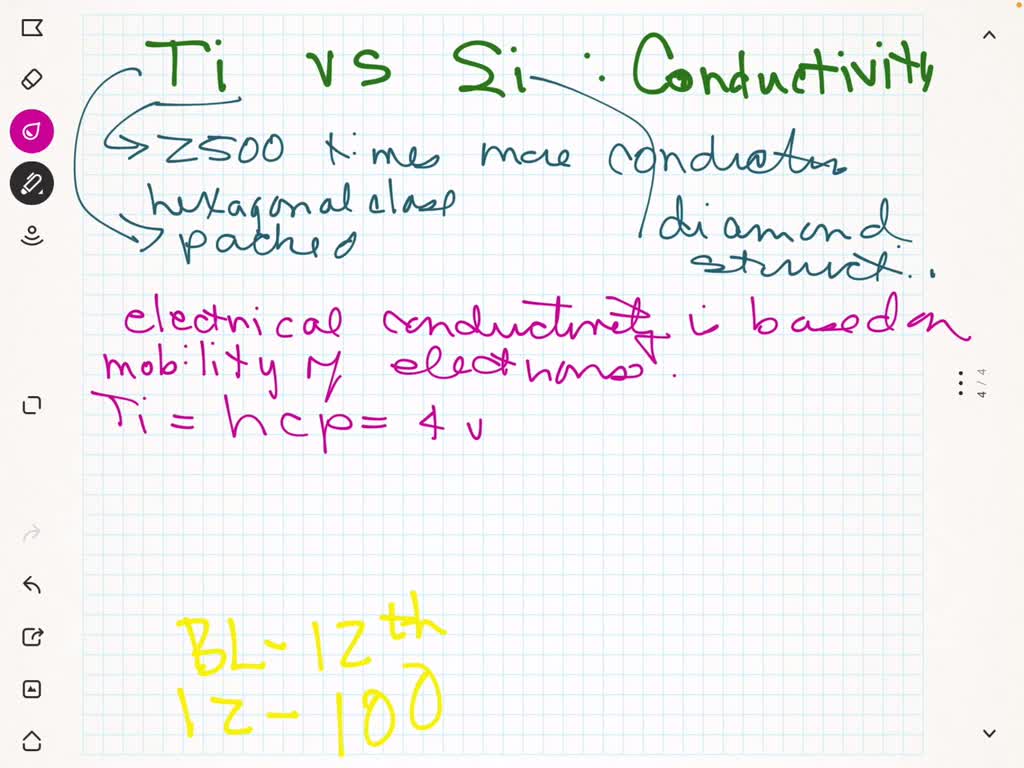 Ti vs Si : Conductivity
2500 times more conductn
hexagonal close
packed
diamond
struct..
electrical conductivity is based on
mobility of electrons.
Ti = hcp = 4 v
BL - 12th
12 - 100
4 / 4